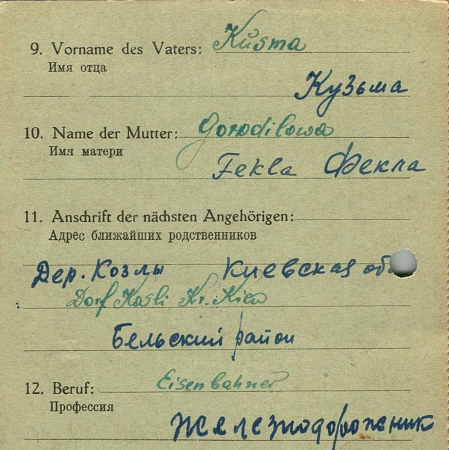 9. Vorname des Vaters: Kusma
Имя отца
Кузьма
10. Name der Mutter: Gorodilowa
Имя матери
Fekla Фекла
11. Anschrift der nächsten Angehörigen:
Адрес ближайших родственников
Дер. Козлы Киевская об
Dorf Kosli Kr. Kiew
Бельский район
12. Beruf: Eisenbahner
Профессия
Железнодорожник